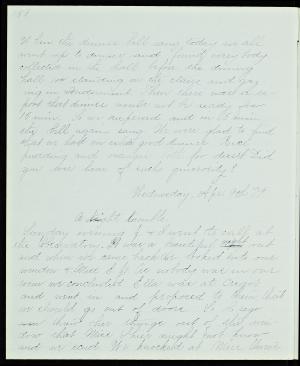 When the dinner bell rang today we all
went up to dinner and found every body
collected in the hall before the dining
hall or standing on the stairs and gaz
ing in bewilderment. Then there was a re-
port that dinner would not be ready for
15 min. So we dispersed and in 15 min
the bell again rang. We were glad to find
that we had an extra good dinner. Rice
pudding and oranges both for desert. Did
you ever hear of such generosity?
Wednesday, Apr. 9th, 79.
A Night Ramble.
Sunday evening J. & I went to call at
the Observatory. It was a beautiful night out
and when we came back we looked into our
window & Miss as nobody was in our
room we concluded Ella was at Oregos
and went in and proposed to them that
we should go out of doors. So to keep
than her things out of the win
dow that Miss Shie might not know
and we went. We knocked at Miss